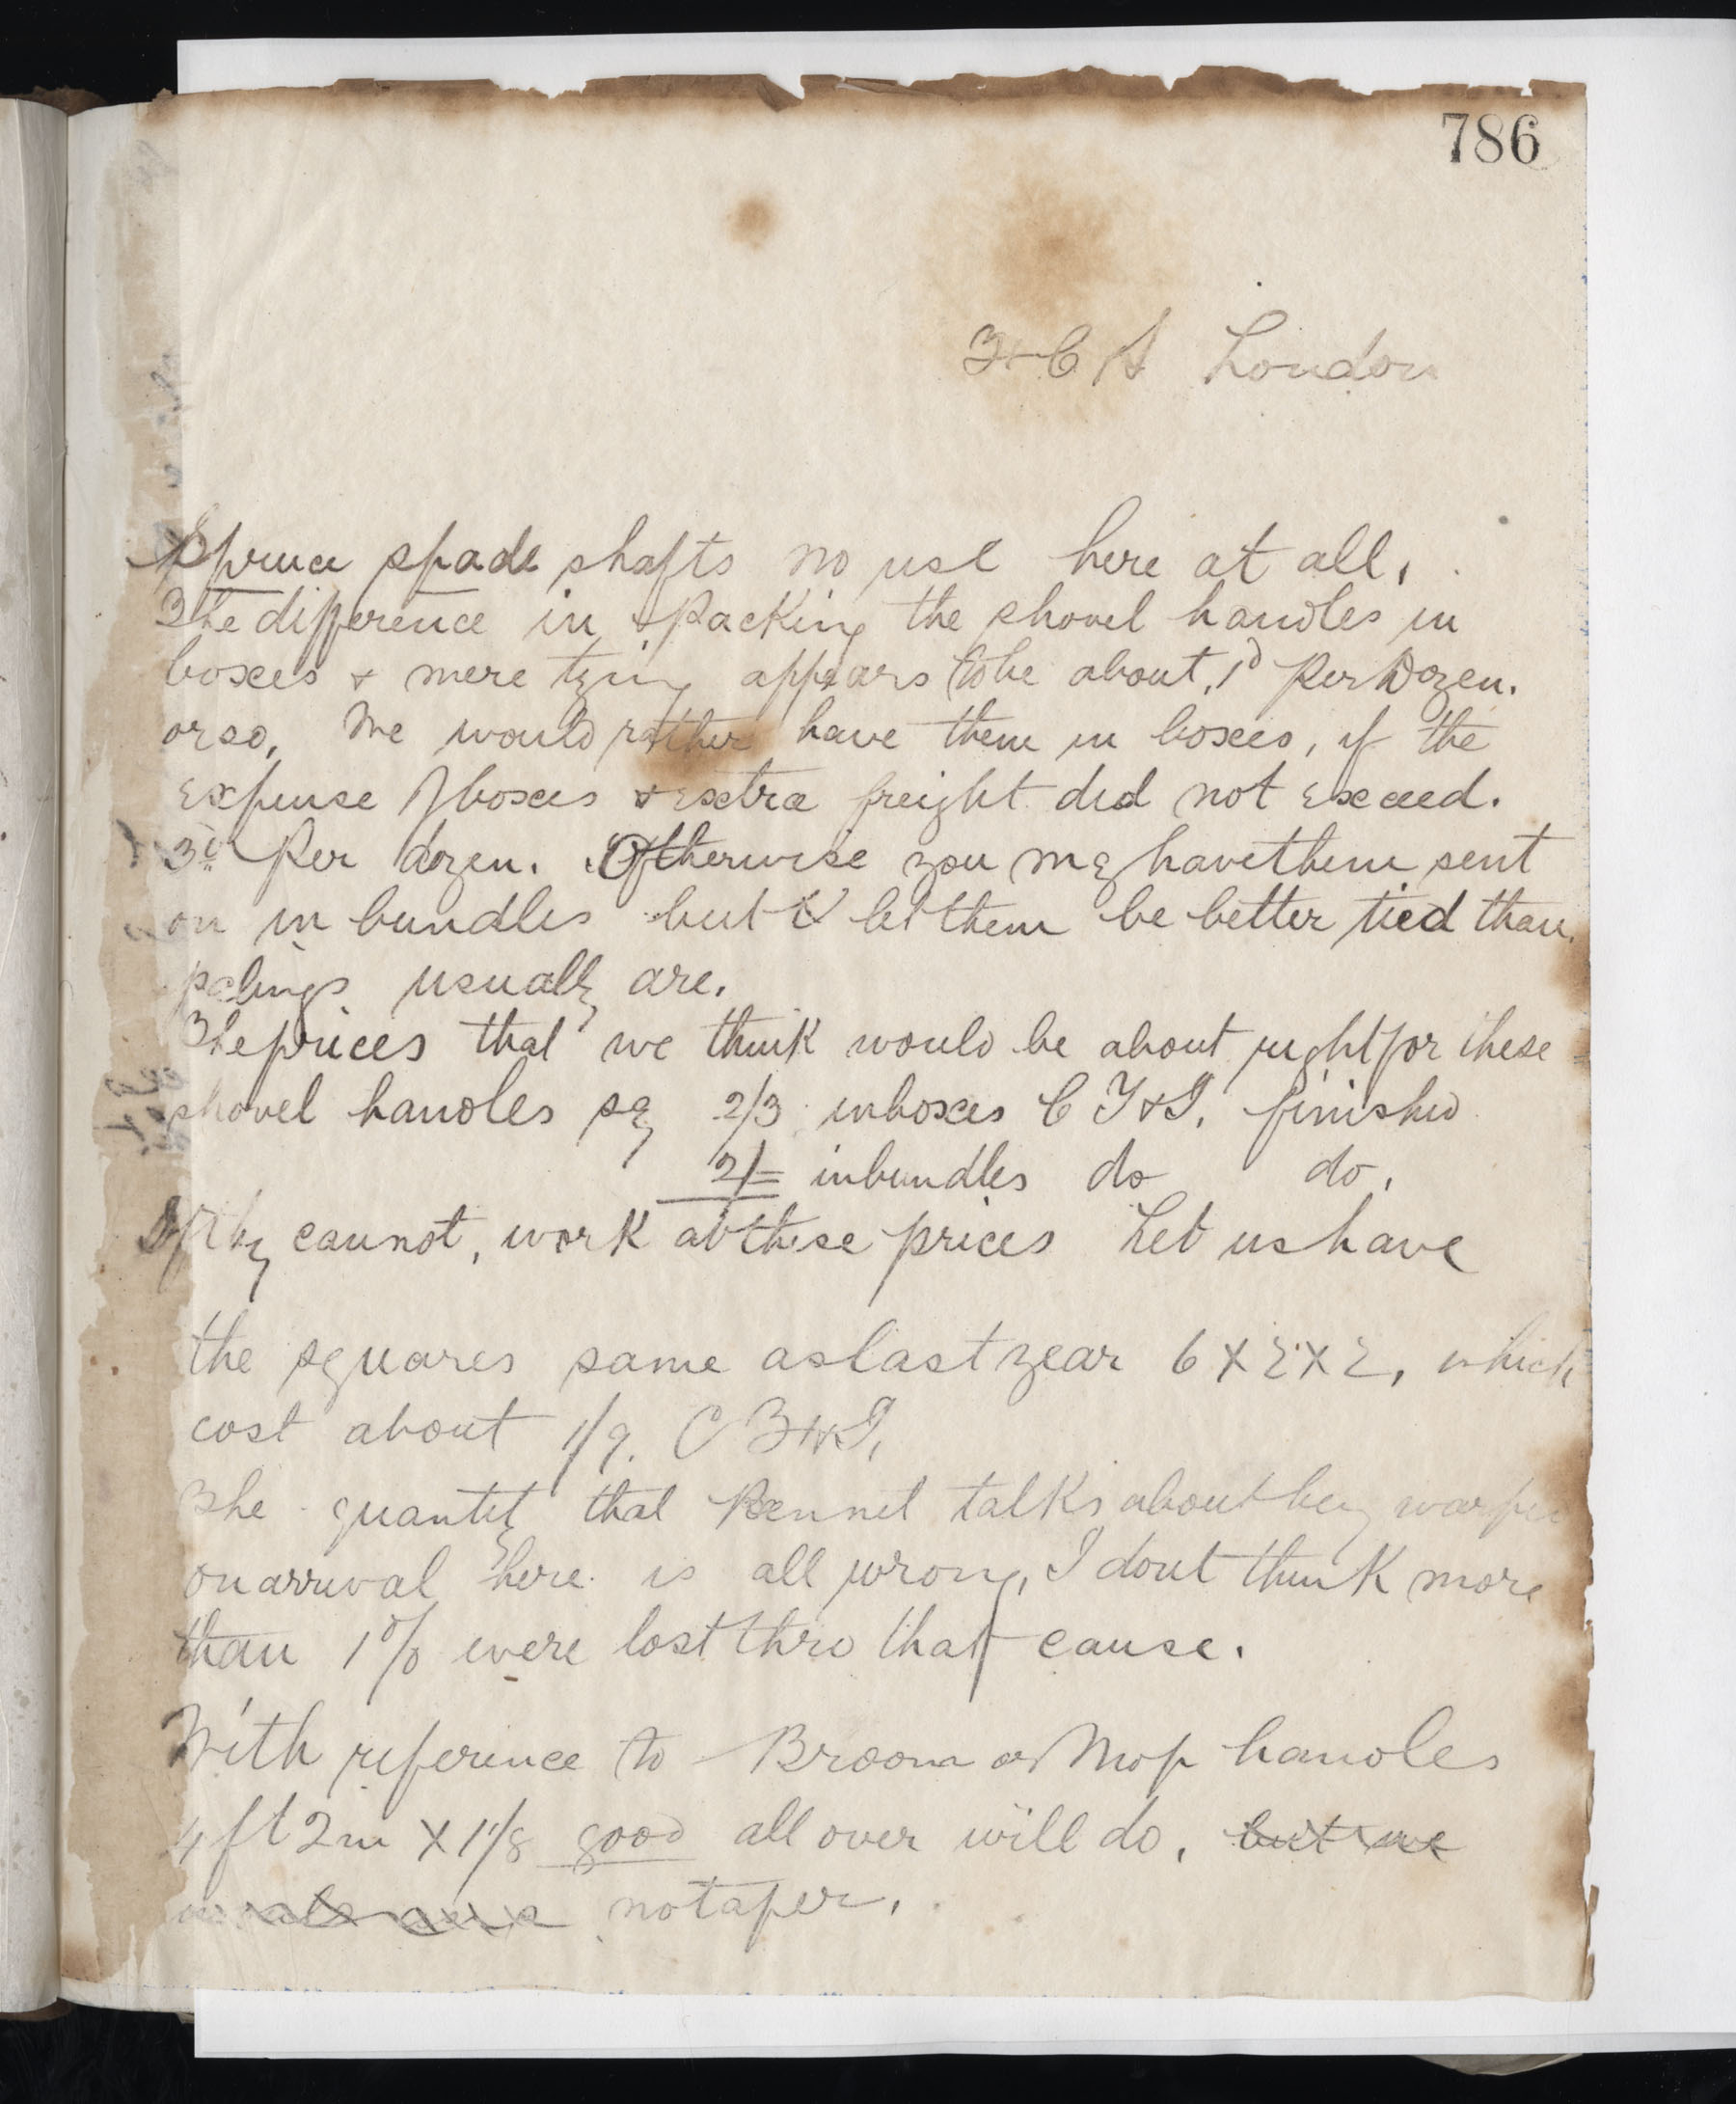 786
London
Spruce spade shafts no use here at all.
The difference in packing the shovel handles in
boxes & mere tying appears to be about 1d Per Dozen.
or so, We would rather have them in boxes, if the
expense of boxes & extra freight did not exceed.
3d Per dozen. Otherwise you my have them sent
on in bundles but let them be better tied than
palings usually are.
The prices that we think would be about right for these
shovel handles say 2/3 in boxes C I & I. finished
2/= in bundles do do.
If they cannot, work at these prices Let us have
the squares same as last year 6 X 2 X 2, which
cost about 1/9.
The quantity that Rennet talks about being warped
on arrival here is all wrong, I dont think more
than 1% were lost thro that cause.
With reference to Broom or Mop handles
4 ft 2 in X 1 1/8 good all over will do, but we
no taper.